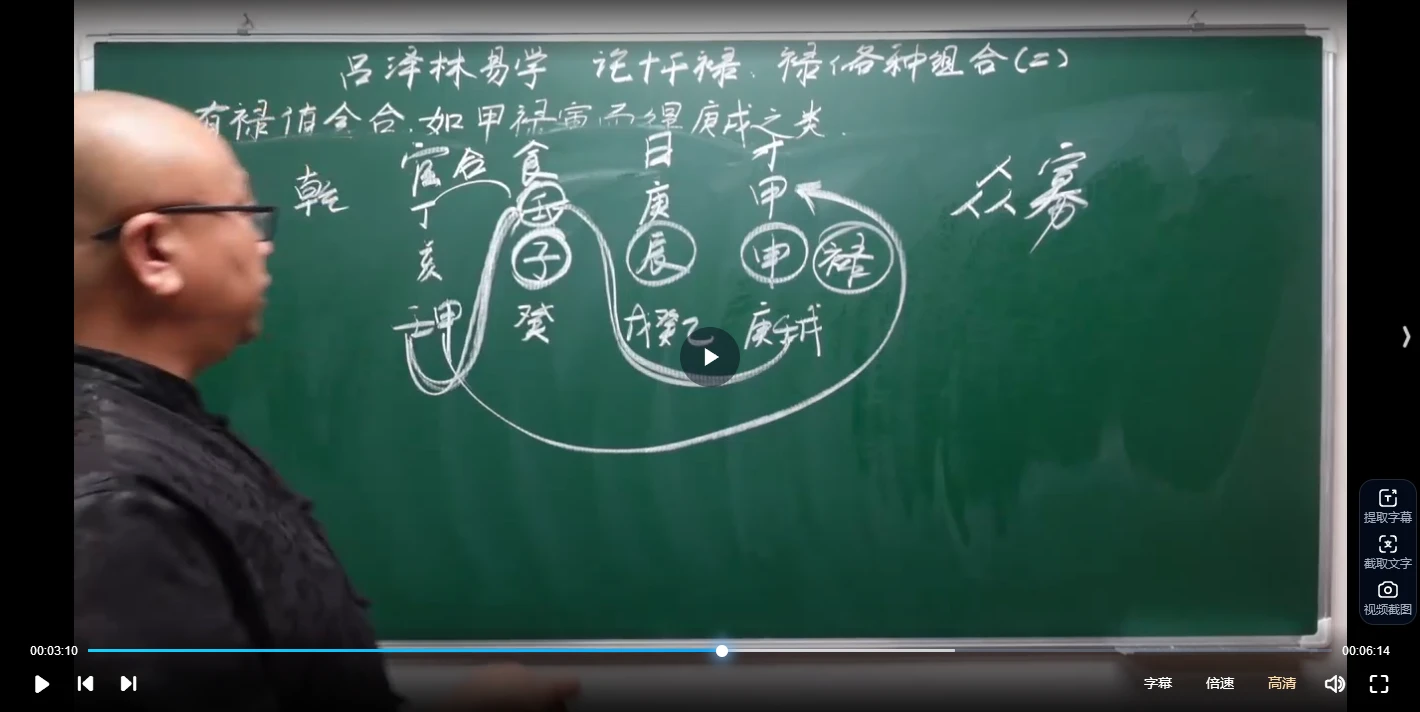 吕泽林易学 论十干禄、禄(各种组合(二)
有禄值会合.如甲禄寅而得庚戌之类.
官 合 食 日 才
乾 丁 壬 庚 甲 众寡
亥 子 辰 申 禄
壬甲 癸 戊癸乙 庚壬戊
提取字幕
截取文字
视频截图
00:03:10 00:06:14
字幕 倍速 高清